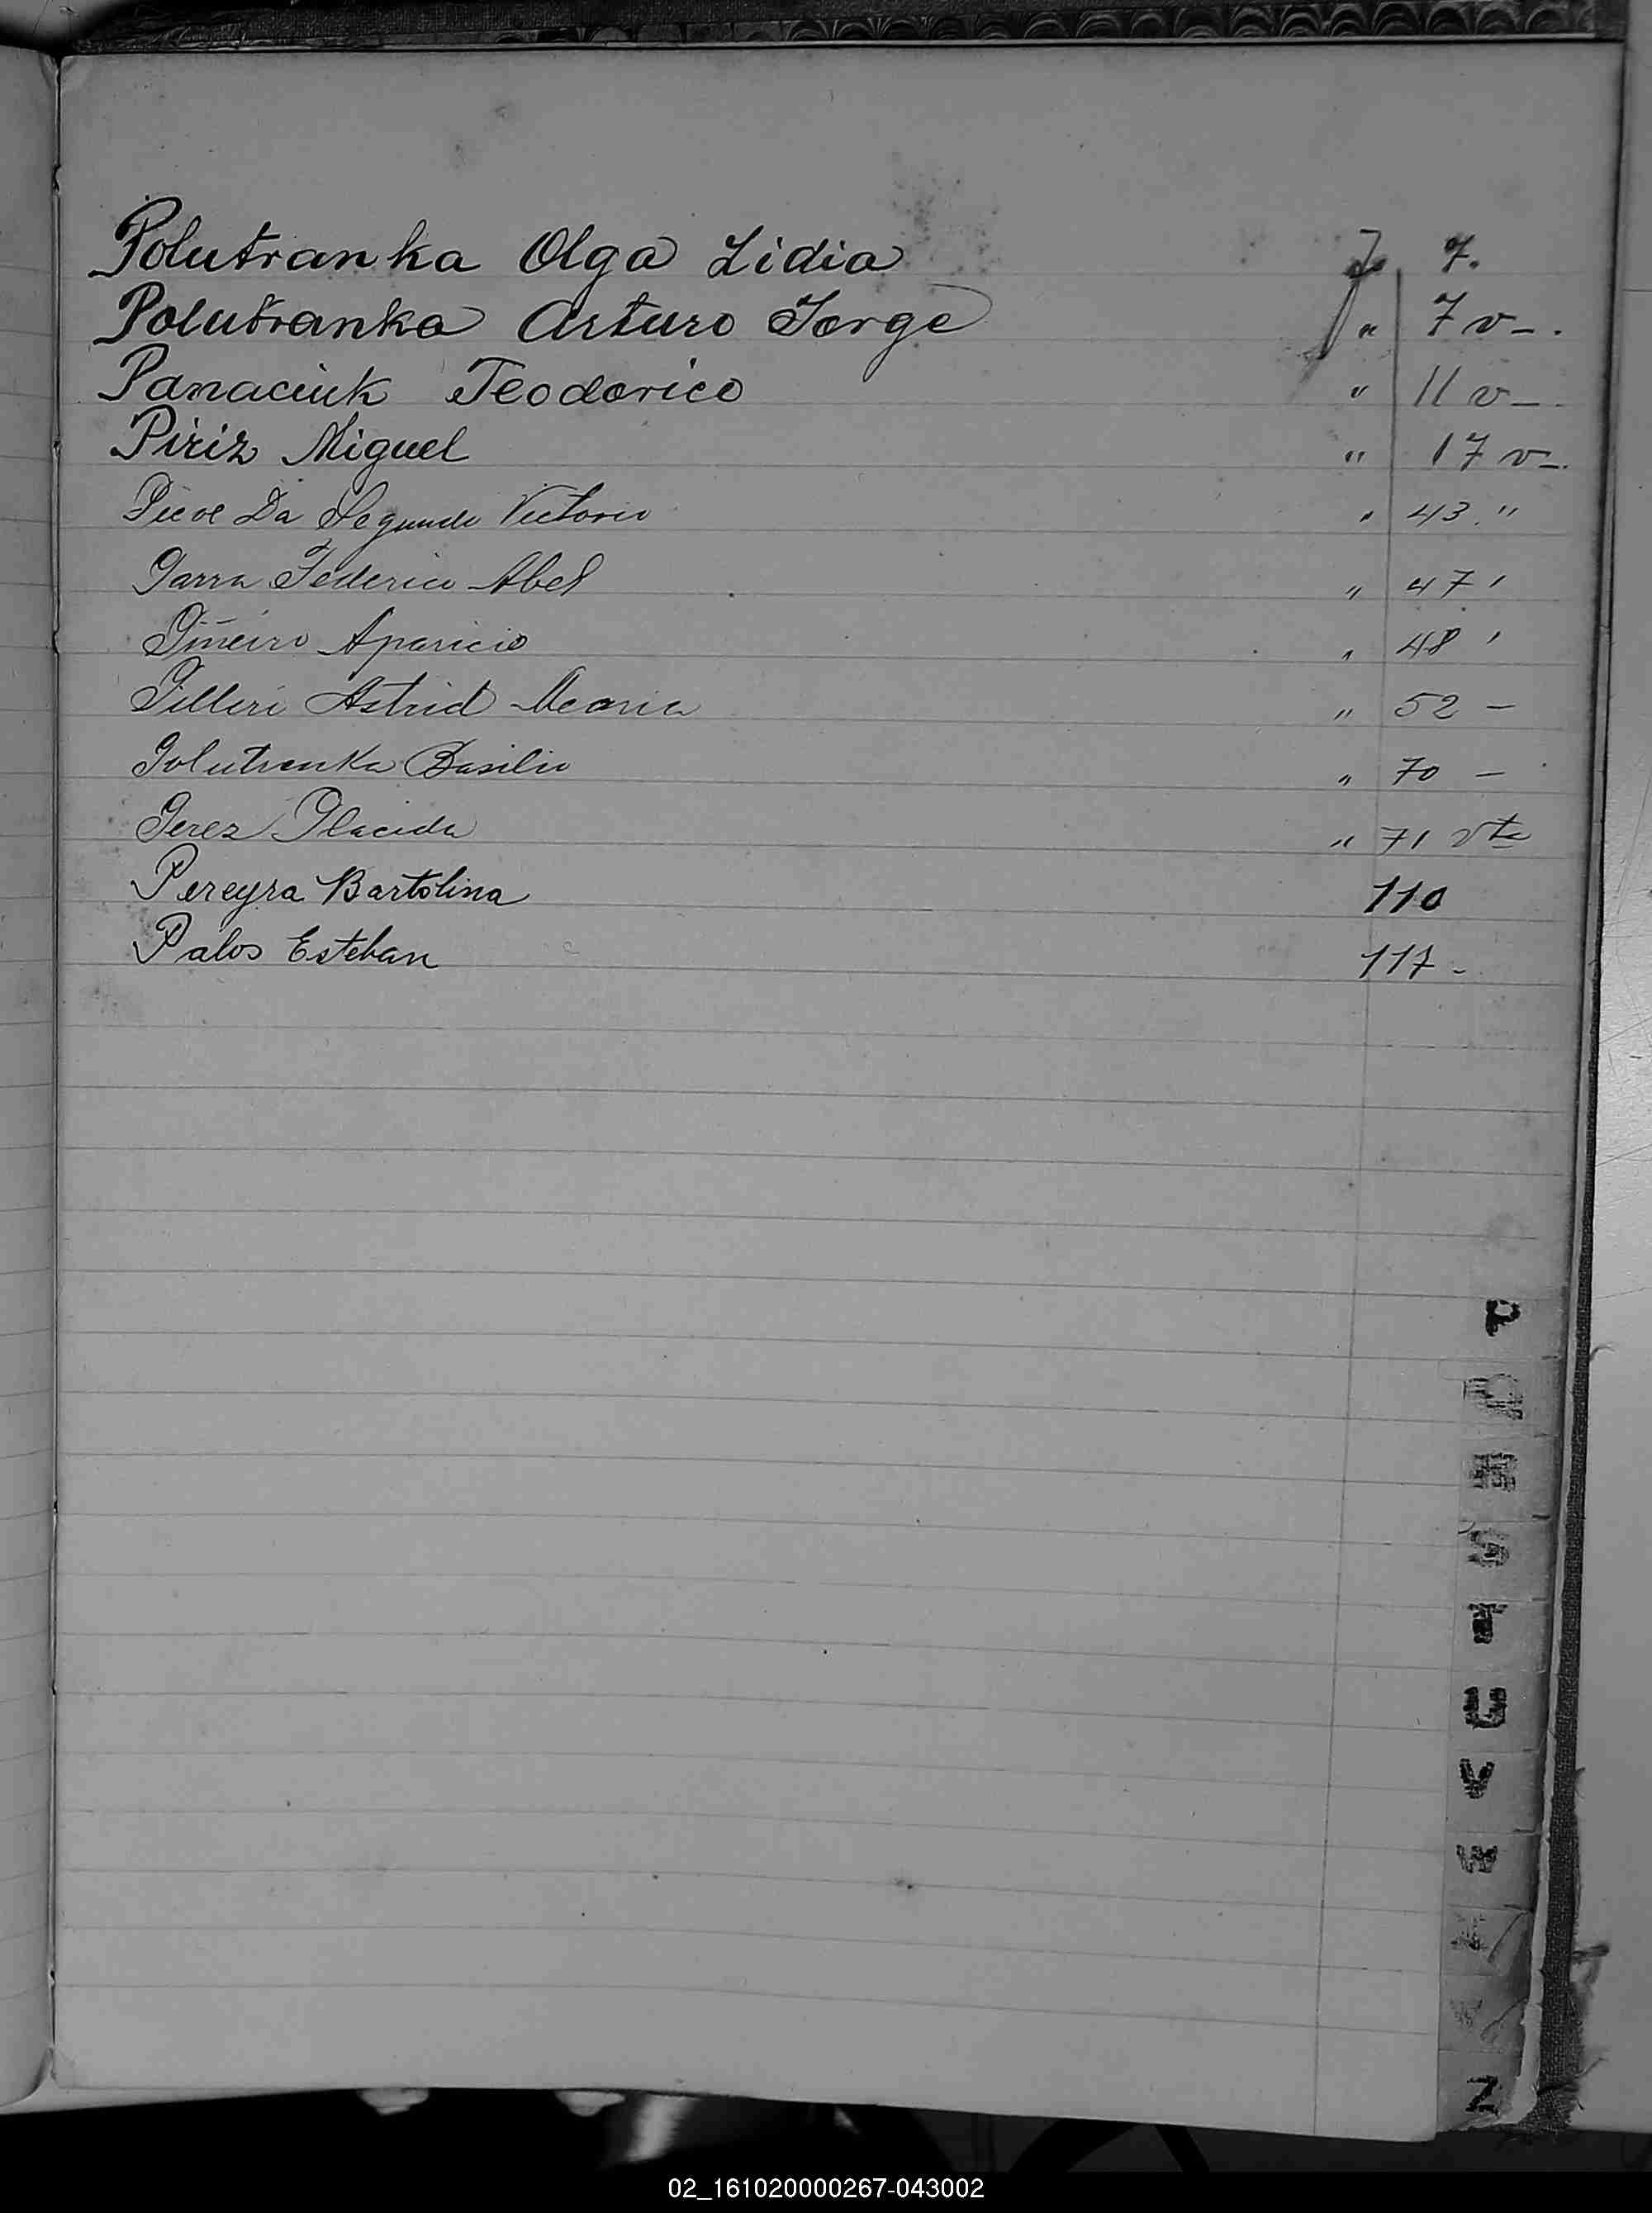 Polutranka Olga Lidia Fo 7.
Polutranka Arturo Jorge " 7 v-.
Panaciuk Teodorico " 11 v-.
Piriz Miguel " 17 v-.
Pieve Da Segundo Victorio " 43 "
Parra Federico Abel " 47 '
Piñeiro Aparicio " 48 '
Pilleri Astrid Maria " 52 -
Polutranka Basilio " 70 -
Perez Placida " 71 vta
Pereyra Bartolina 110
Palos Esteban 117-
P
Q
R
S
T
U
V
W
Z
02_161020000267-043002